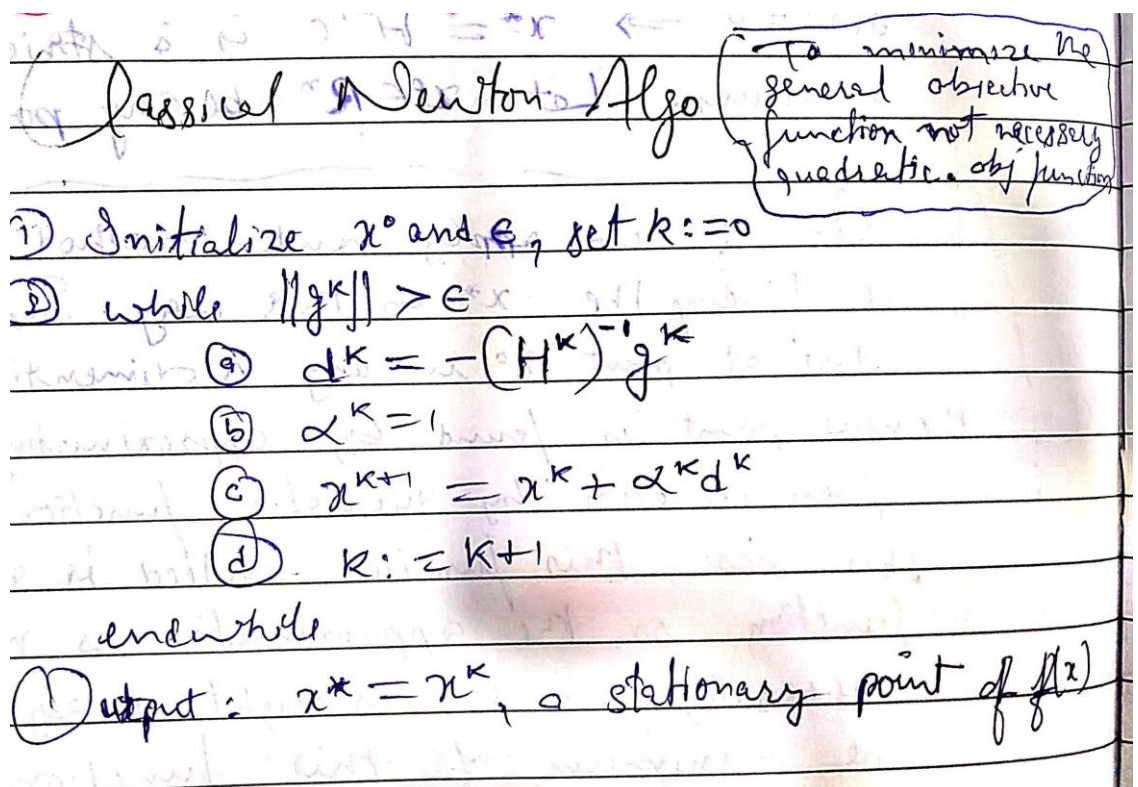 Classical Newton Algo
To minimize the
general objective
function not necessary
quadratic obj function
① Initialize x⁰ and ϵ, set k:=0
② while ||gᴷ|| > ϵ
ⓐ dᴷ = -(Hᴷ)⁻¹gᴷ
ⓑ αᴷ = 1
ⓒ xᴷ⁺¹ = xᴷ + αᴷdᴷ
ⓓ k: = K+1
endwhile
Output: x* = xᴷ, a stationary point of f(x)